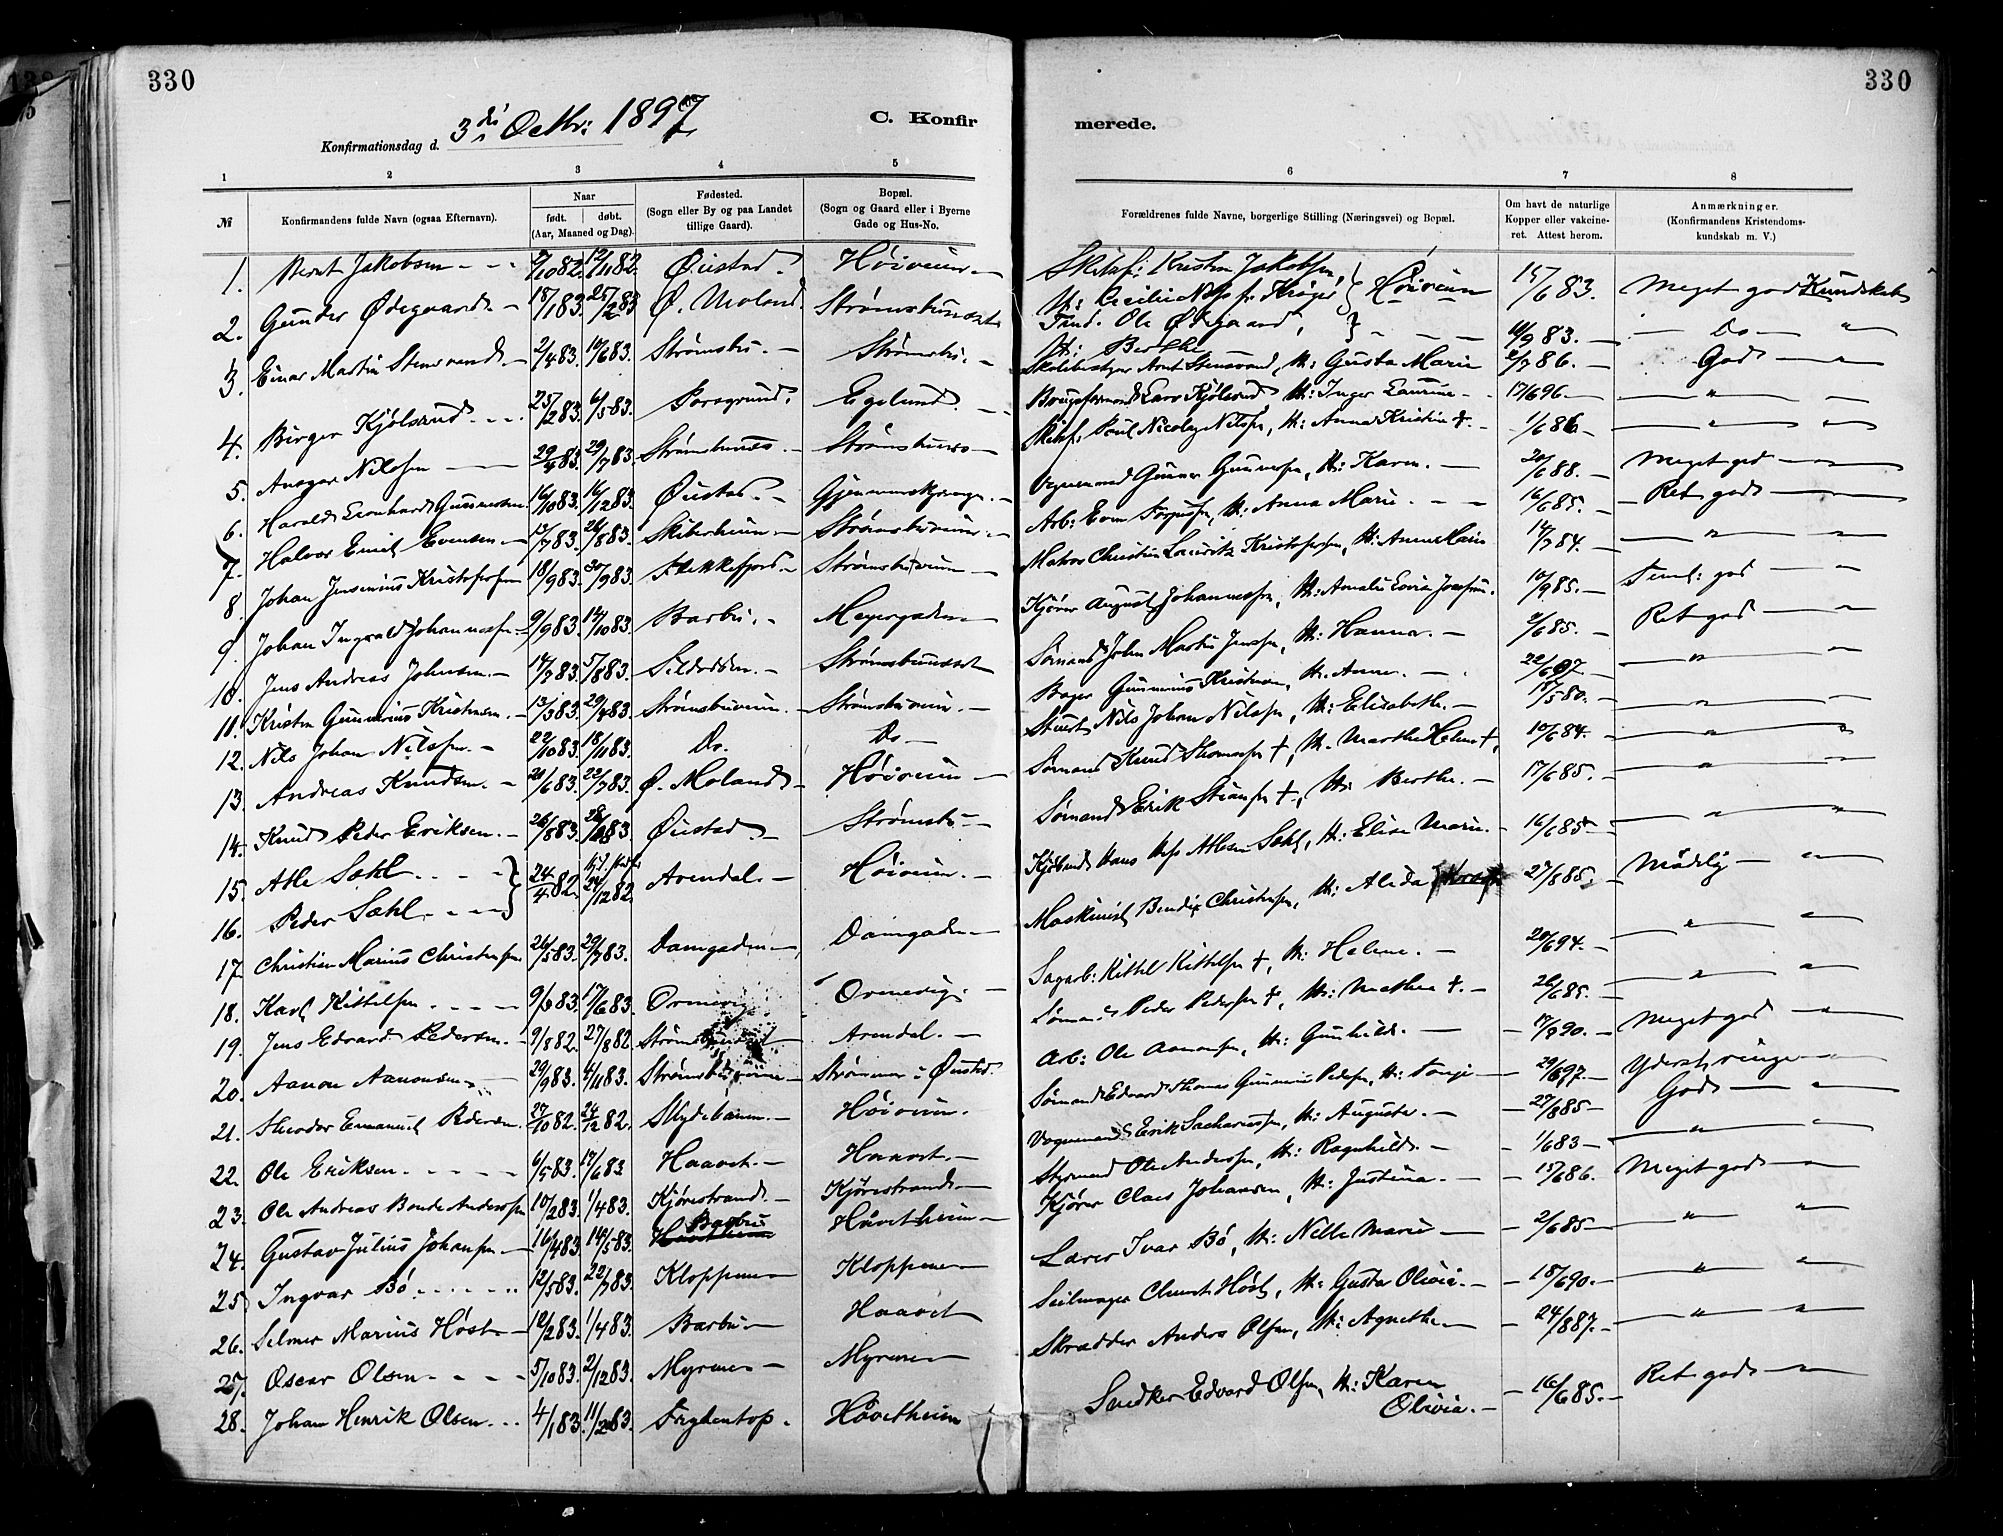 330
Konfirmationsdag d. 3di Octbr: 1897
C. Konfir
1 2 3 4 5
№
Konfirmandens fulde Navn (ogsaa Efternavn).
Naar
født. døbt.
(Aar, Maaned og Dag).
Fødested.
(Sogn eller By og paa Landet
tillige Gaard).
Bopæl.
(Sogn og Gaard eller i Byerne
Gade og Hus-No.
1. Bernt Jakobsen 12/11 82. Øiestad. Høiveien
2. Gunder Ødegaard 18/1 83. 25/2 83 Ø. Moland. Strømsbuaaset
3. Einar Martin Stensvand 2/4 83. 10/6 83. Strømsbu. Strømsbu.
4. Birger Kjølsrud 25/2 83. 6/5 83. Porsgrund. Egelund.
5. Ansgar Nilssen 29/4 83. 29/7 83. Strømsbunes. Strømsbunes
6. Harald Leonhard Gunnersen 16/10 83. 16/12 83. Øiestad.
7. Halvor Emil Evensen 13/7 83. 26/8 83. Skiberheien Strømsbuveien
8. Johan Jensenius Kristofersen 18/9 83. 30/9 83. Flekkefjord Strømsbuveien
9. Johan Ingvald Johannessen 9/9 83. 14/10 83. Barbu. Meyergaden
10. Jens Andreas Johnsen 14/7 83. 5/8 83. Sildodden. Strømsbuaaset
11. Kristen Gunnerius Kristensen. 13/3 83. 29/4 83. Strømsbuveien. Strømsbuveien.
12. Nils Johan Nilssen. 22/10 83. 18/11 83. Do. Do
13. Andreas Knudsen. 21/6 83. 22/7 83. Ø. Moland Høiveien
14. Knud Peder Eriksen. 26/8 83. Øiestad. Strømsbu
15. Atle Sæhl } 24/4 82. 24/12 82. Arendal. Høiveien.
16. Peder Sæhl
17. Christian Marius Christensen 26/5 83. 29/7 83. Damgaden Damgaden
18. Karl Kittelsen 9/3 83. 17/6 83. Ormevig Ormevig.
19. Jens Edvard Pedersen. 9/8 82. 27/8 82. Arendal.
20. Aanon Aanonsen 29/9 83. 4/11 83. Strømsbuveien Strømmen i Øiestad.
21. Theodor Emanuel Pedersen 27/10 82. 24/12 82. Skydebanen. Høiveien.
22. Ole Eriksen. 6/5 83. 17/6 83 Haavet. Haavet.
23. Ole Andreas Bende Anderssen 10/2 83. 1/4 83. Kjørestrand. Kjørestrand.
24. Gustav Julius Johansen 16/4 83. 14/5 83. Barbu Haavetheien
25 Ingvar Bø 12/5 83. 22/7 83. Kloppene Kloppene
26. Selmer Marius Høst 12/2 83. 1/4 83. Barbu Haavet
27. Oscar Olsen 5/10 83. 2/12 83. Myrene Myrene
28. Johan Henrik Olsen 4/1 83. 11/2 83. Høvetheien
330
merede.
6 7 8
Forældrenes fulde Navne, borgerlige Stilling (Næringsvei) og Bopæl.
Om havt de naturlige
Kopper eller vakcine-
ret. Attest herom.
Anmærkninger.
(Konfirmandens Kristendoms-
kundskab m. V.)
Skibsf: Kristen Jakobsen, } Høiveien 15/6 83. Meget god Kundskab
H: Cecilie
Ole Ødegaard, } 9 83. Do
H: Berthe
Arnt Stensvand, H: Gusta Marie 7 86. God
Lars Kjølsrud H: Inger Laurine 17/6 96.
Skibsf. Poul Nicolay Nilssen, H: Anna Kristine +. 1/6 86.
Vognmand Gunner Gunnersen, H: Karen. 20/6 88. Meget god
Arb: Even H: Anna Marie. 16/6 85. Ret god
Matros Christen Lauritz Kristofersen, H: Anne Marie 14/7 84.
Kjører August Johannessen, H: Amalie Lovise Josefine. 10/9 85. Teml: god
Sømand John Martin Jenssen, H: Hanna. 2/6 85. Ret god
Bager Gunnerius Kristensen, H. Anne. 22/6 97.
Nils Johan Nilssen, H: Elisabeth. 18/5 80.
Sømand Knud Thomassen +, H. Marthe Helene +, 10/6 84.
Sømand Erik +, H: Berthe. 17/6 85.
Hans Atlesen Sæhl, H: Elise Marie. 16/6 85
Maskinist Bendix Christensen, H: Alida 27/8 85. Mådelig
Sagarb: Kittel Kittelsen +, H: Helene. 20/6 94.
Sømand Peder Pedersen +, H: Mathea +. 26/6 85.
Arb: Ole Aanonsen, H: Gunhild. 17/8 90. Meget god
Sømand Edvard Thomas Gunnerius Pedersen, H: Tonje 29/6 97. Yderst ringe
Vognmand Erik Sachariassen, H: Auguste. 27/8 85 God
Styrmand Ole Anderssen, H: Ragnhild. 1/6 83
Kjører Claes Johansen, H: Justina. 15/6 86. Meget god
Lærer Ivar Bø, H: Nelle Marie 2/6 85
Seilmager Høst, H: Gusta Olivia. 18/6 90.
Skrædder Anders Olsen, H: Agnethe 24/8 87.
Snedker Edvard Olsen, H: Karen 16/6 85. Ret god
Olivia.